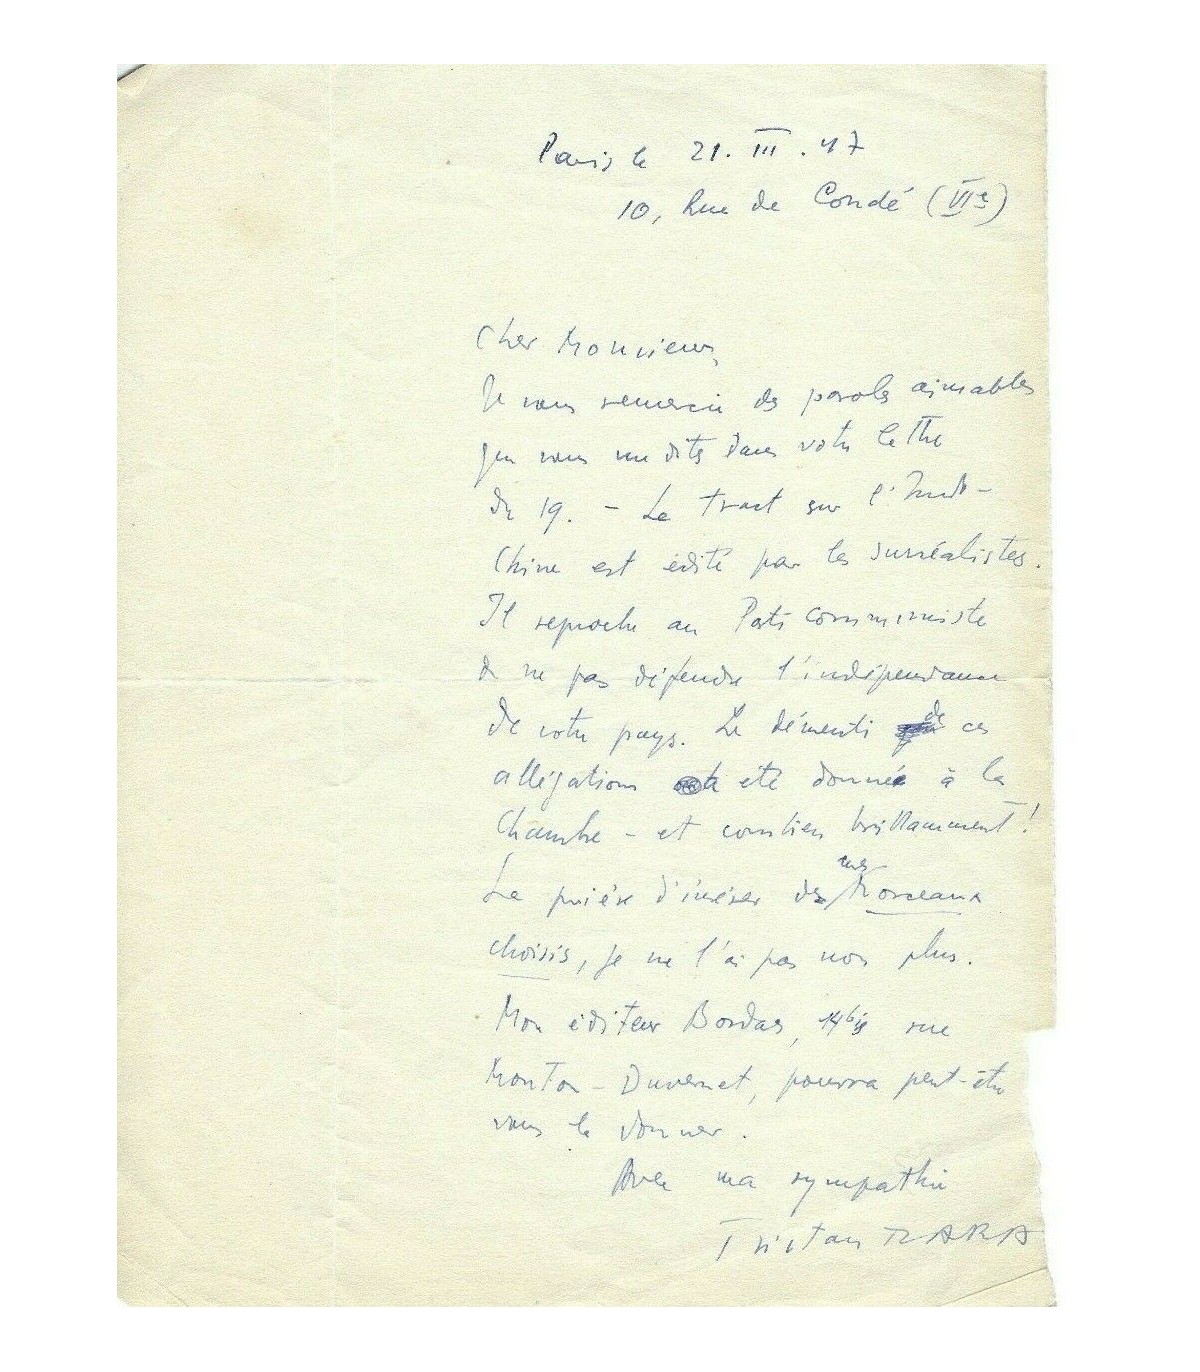 Paris le 21. III. 47
10, Rue de Condé (VIe)
Cher Monsieur,
Je vous remercie des paroles aimables
que vous me dites dans votre lettre
du 19. – Le tract sur l'Indo-
Chine est édité par les surréalistes.
Il reproche au Parti communiste
de ne pas défendre l'indépendance
de votre pays. Le démenti de ces
allégations a été donné à la
Chambre – et combien brillamment !
Le prière d'insérer de mes Morceaux
choisis, je ne l'ai pas non plus.
Mon éditeur Bordas, 14bis rue
Mouton-Duvernet, pourra peut-être
vous le donner.
Avec ma sympathie
Tristan TZARA